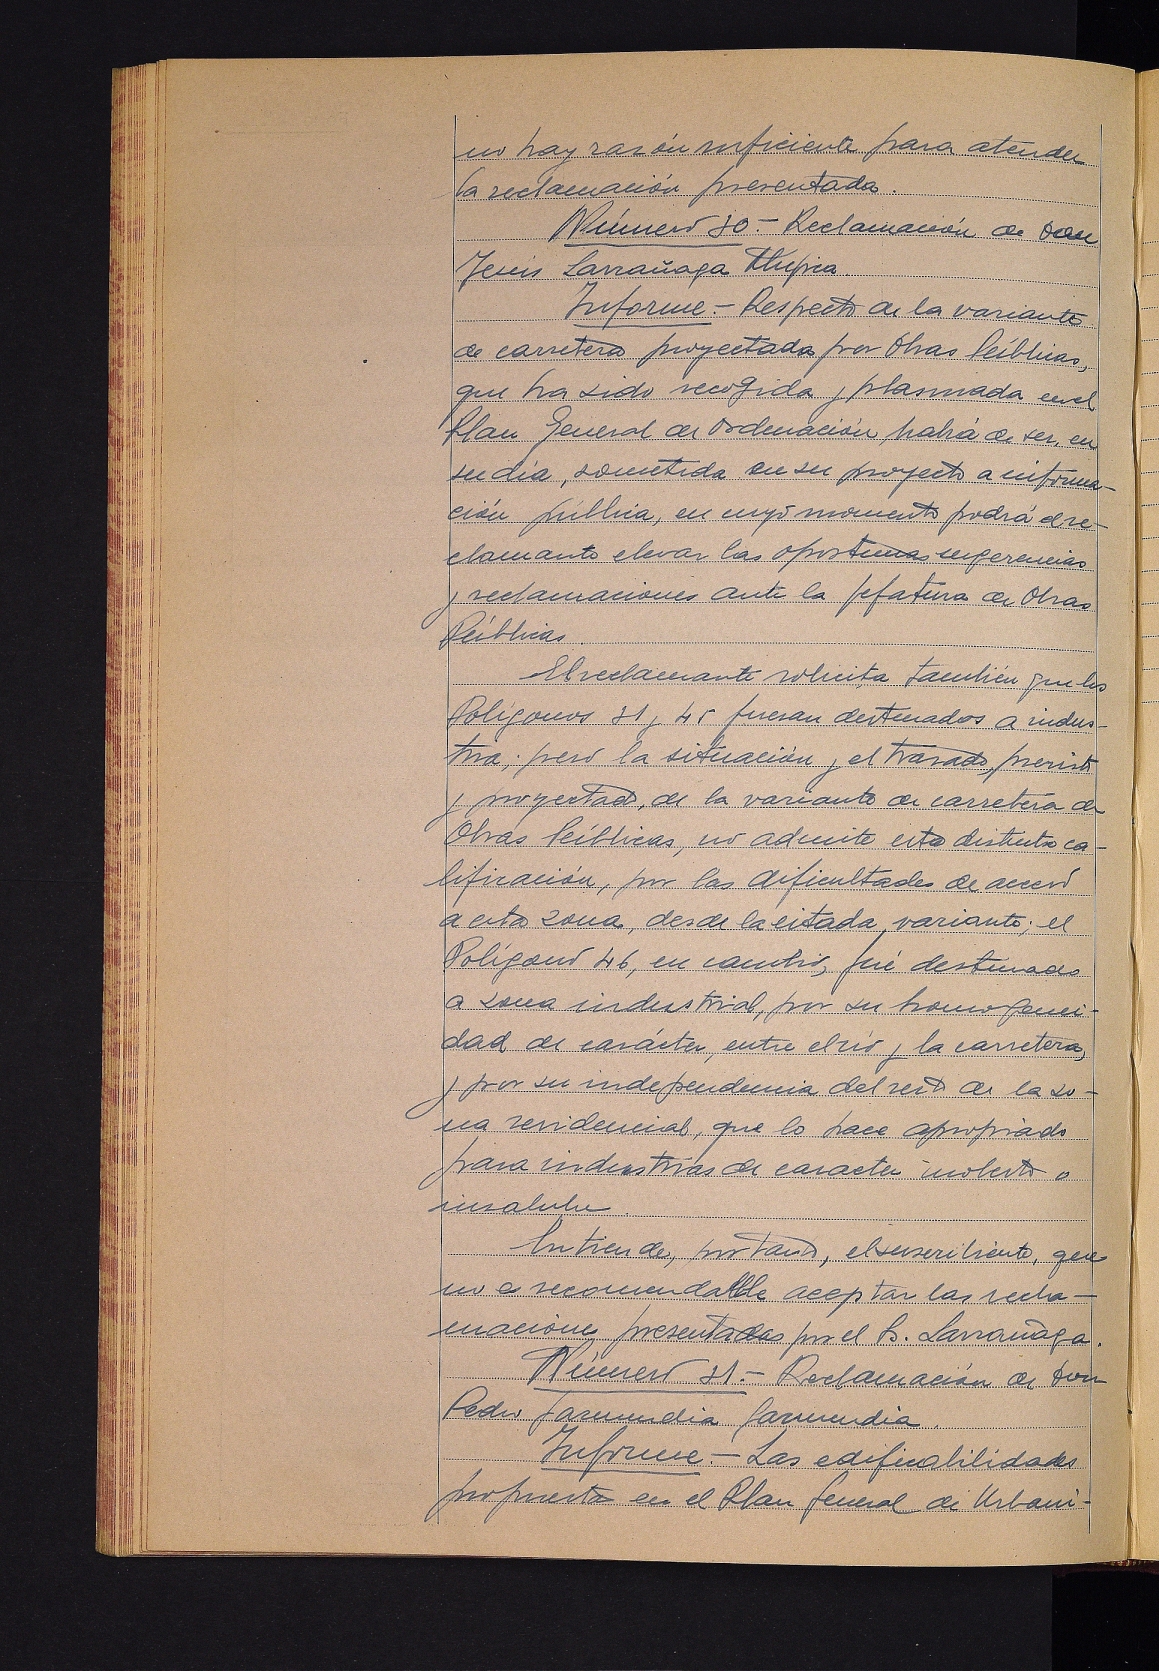 no hay razón suficiente para atender
la reclamación presentada.
Número 30.- Reclamación de don
Jesús Larrañaga
Informe.- Respecto de la variante
de carretera proyectada por Obras Públicas,
que ha sido recogida y plasmada en el
Plan General de Ordenación habrá de ser, en
su día, sometida en su proyecto a informa-
ción pública, en cuyo momento podrá el re-
clamante elevar las oportunas sugerencias
y reclamaciones ante la Jefatura de Obras
Públicas.
El reclamante solicita también que los
Polígonos 31 y 45 fueran destinados a indus-
tria, pero la situación y el trazado, previsto
y proyectado, de la variante de carretera de
Obras Públicas, no admite esta distinta ca-
lificación, por las dificultades de acceso
a esta zona, desde la citada variante; el
Polígono 46, en cambio, fué destinado
a zona industrial, por su homogenei-
dad de carácter, entre el río y la carretera,
y por su independencia del resto de la zo-
na residencial, que lo hace apropiado
para industrias de caracter molesto o
insalubre.
Entiende, por tanto, el suscribiente, que
no es recomendable aceptar las recla-
maciones presentadas por el Sr. Larrañaga.
Número 31.- Reclamación de don
Pedro Garmendia Garmendia.
Informe.- Las edificabilidades
propuesta en el Plan General de Urbani-